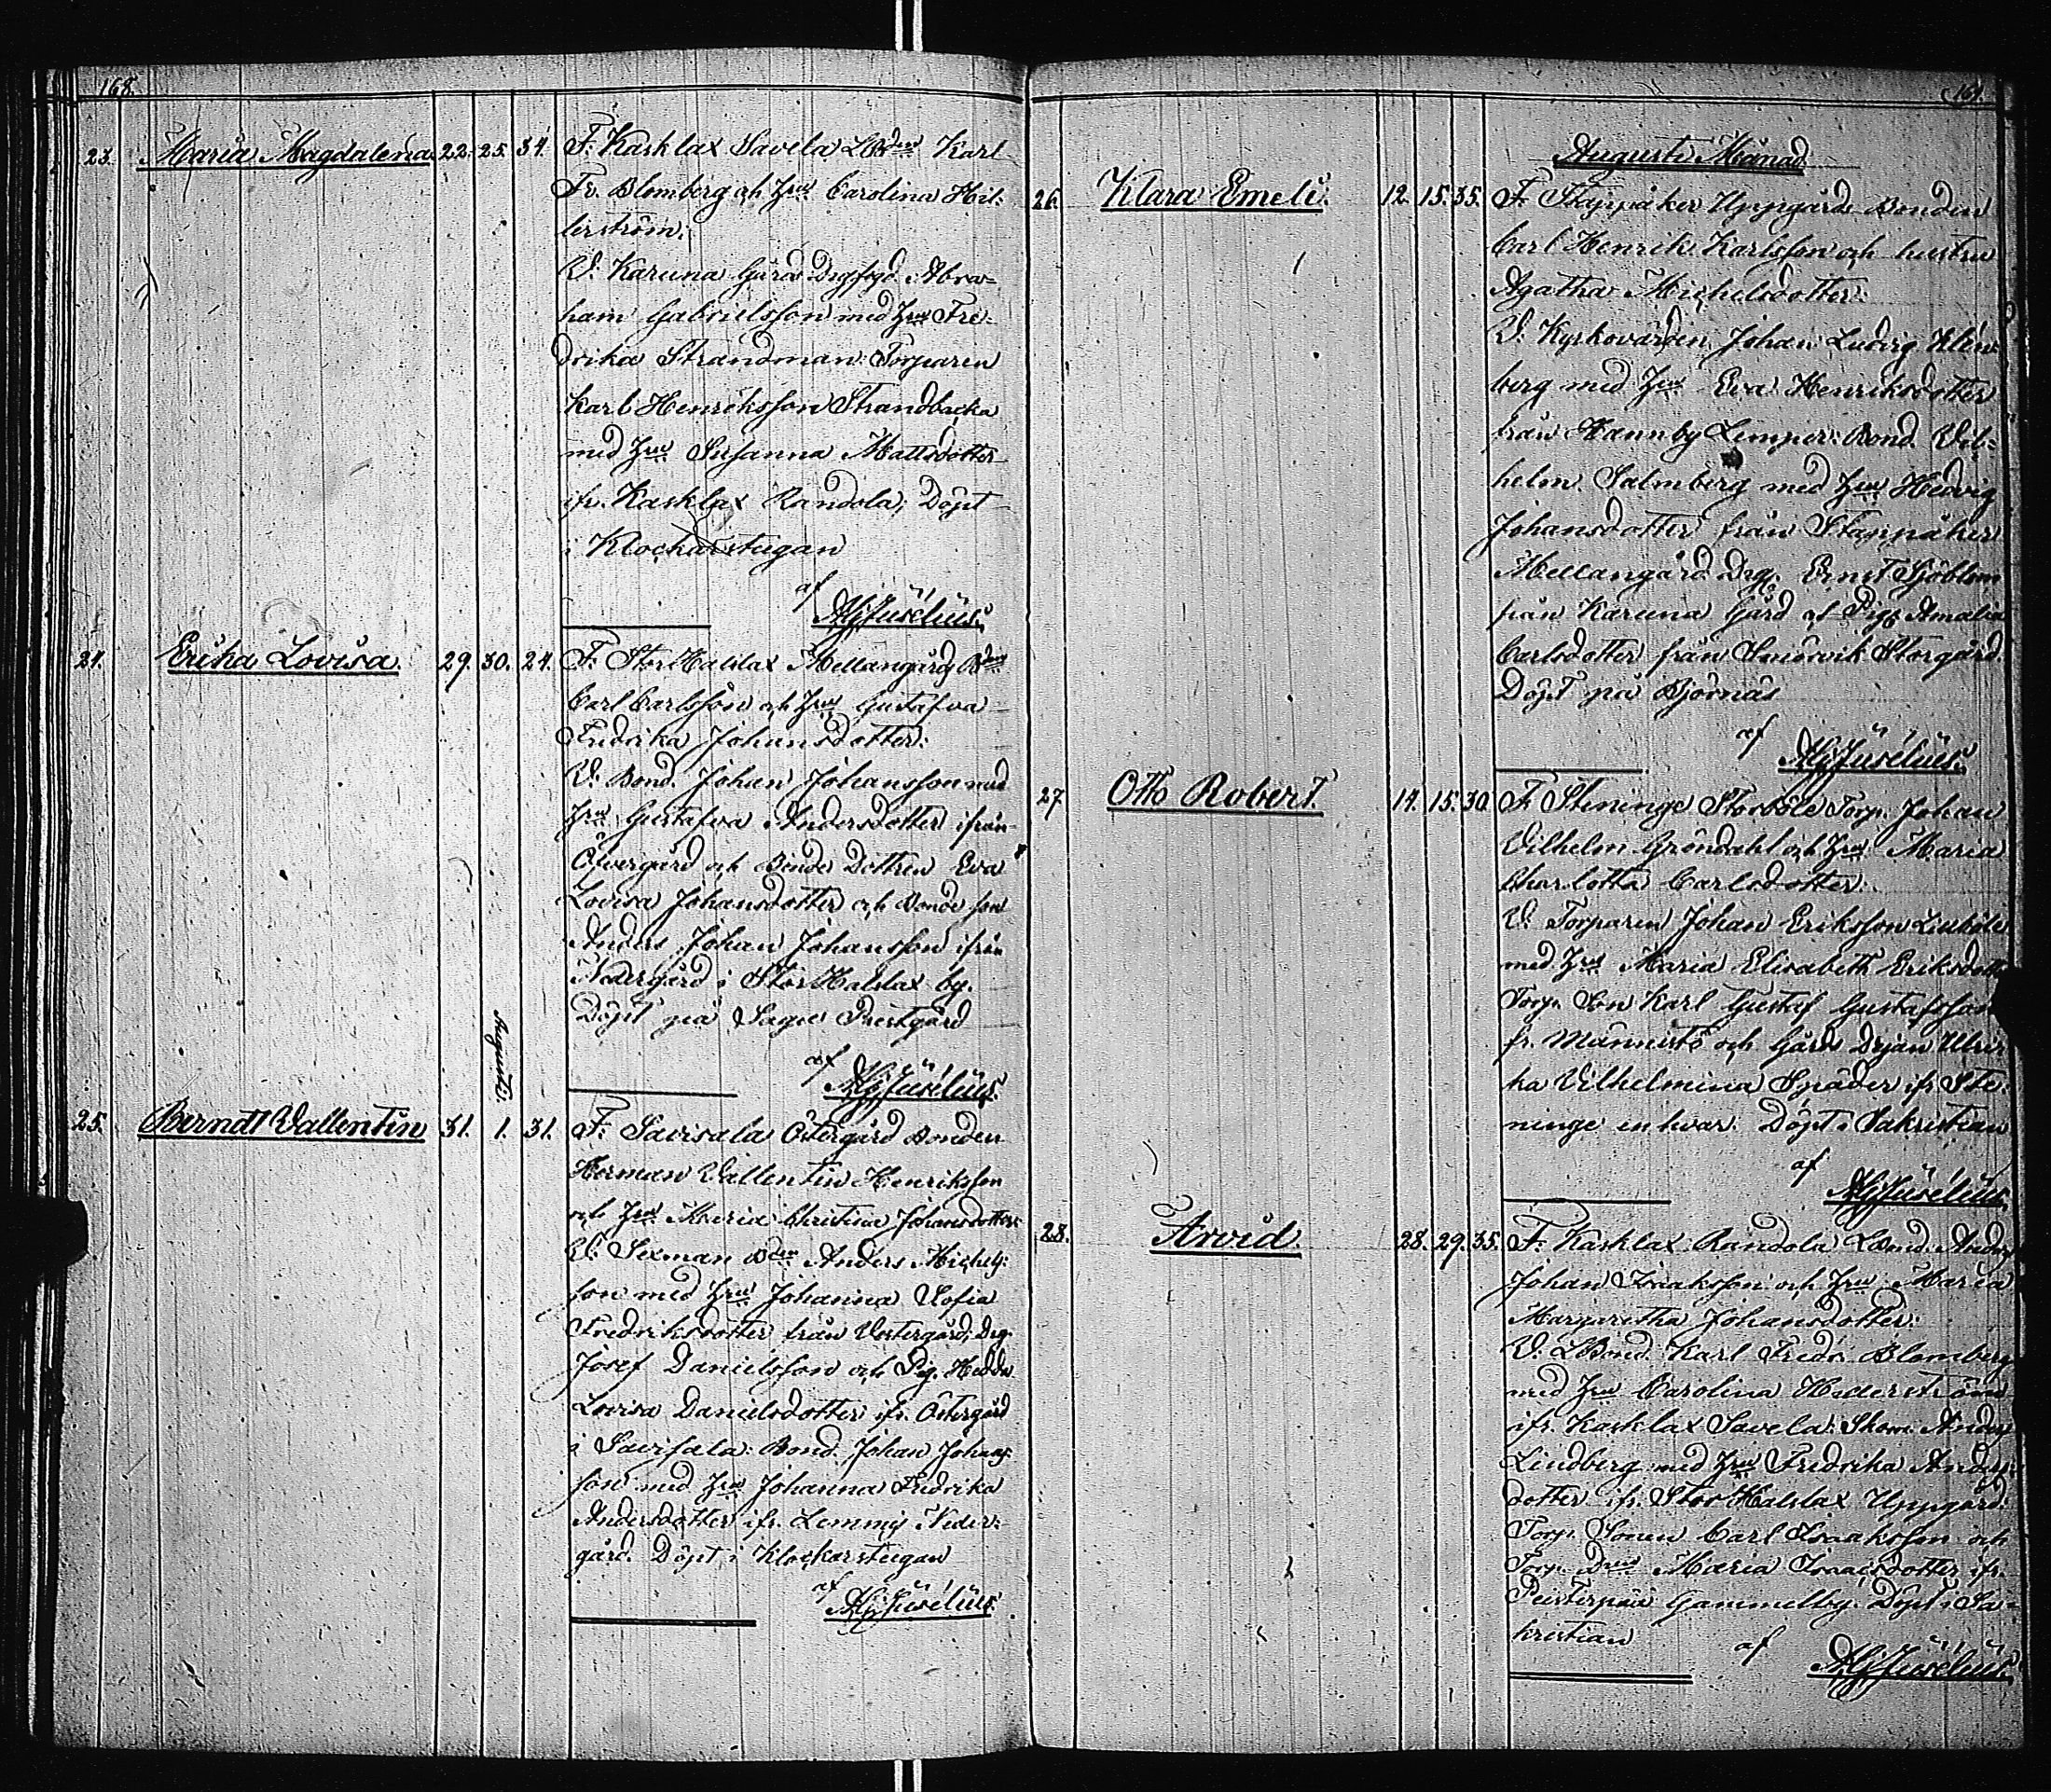 168.
23. Maria Magdalena 22. 25. 34. F: Kasklax Savela LBden Karl
Fr. Blomberg och Hru Carolina Hel-
lerström.
V. Karuna Gård: Drgfogd. Abra-
ham Gabrielsson med Hru Fre-
drika Strandman: Torparen
Karl Henriksson Strandbacka
med Hru Susanna Mattsdotter
ifr. Kasklax Randola; Döpt
i Klockarstugan
af
AGJusélius.
24. Erika Lovisa. 29. 30. 24. F. Stor Halslax Mellangård Bden
Carl Carlsson och Hru Gustafva
Fredrika Johansdotter:
V. Bond. Johan Johansson med
Hru Gustafva Andersdotter ifrån
Öfvergård och Bonde Dottren Eva
Lovisa Johansdotter och Bonde son
Anders Johan Johansson ifrån
Nedergård i Stor Halslax by.
Döpt på Sagu Prestgård
af
AGJusélius.
Augusti.
25. Berndt Vallentin 31. 1. 31. F: Savisala Östergård Bonden
Herman Vallentin Henriksson
och Hru Maria Christina Johansdotter
V. Sexman Bden Anders Michels-
son med Hru Johanna Sofia
Fredriksdotter från Vestergård; Drg.
Josef Danielsson och Pig. Hedda
Lovisa Danielsdotter ifr. Östergård
i Savisala: Bond. Johan Johans-
son med Hru Johanna Fredrika
Andersdotter ifr. Lemmis Neder-
gård. Döpt i Klockarstugan
af
AGJusélius.
169.
Augusti Månad
26. Klara Emeli. 12. 15. 35. F. Stappåker Uppgård Bonden
Carl Henrik Karlsson och hustru
Agatha Michelsdotter.
V. Kyrkovärden Johan Ludvig Klin-
berg med Hru Eva Henriksdotter
från Hannby Lemper: Bond. Vil-
helm Salmberg med Hru Hedvig
Johansdotter från Stappåker
Mellangård Drg. Ernst Sjöblom
från Karuna Gård och Pig. Amalia
Carlsdotter från Smörvik Storgård.
Döpt på Björnäs
af
AGJusélius.
27. Otto Robert. 14. 15. 30. F. Steninge Storböle Torp. Johan
Vilhelm Gröndahl och Hru Maria
Charlotta Carlsdotter.
V. Torparen Johan Eriksson Lillböle
med Hru Maria Elisabeth Eriksdotter
Torp. Son Karl Gustaf Gustafsson
fr. Männistö och Gårds Drjan Ulri-
ka Vilhelmina Späder ifr. Ste-
ninge en hvar. Döpt i Sakristian
af
AGJusélius.
28. Arvid 28. 29. 35. F. Kasklax Randola LBond. Anders
Johan Isaksson och Hru Maria
Margaretha Johansdotter:
V. LBond Karl Fredr. Blomberg
med Hru Carolina Hellerström
ifr. Kasklax Savela: Skom. Anders
Lindberg med Hru Fredrika Anders-
dotter ifr. Stor Halslax Uppgård:
Torp. Sonen Carl Isaaksson och
Torp. Dren Maria Isaksdotter ifr.
Peisterpää Gammelby. Döpt i Sa-
kristian
af
AGJusélius.